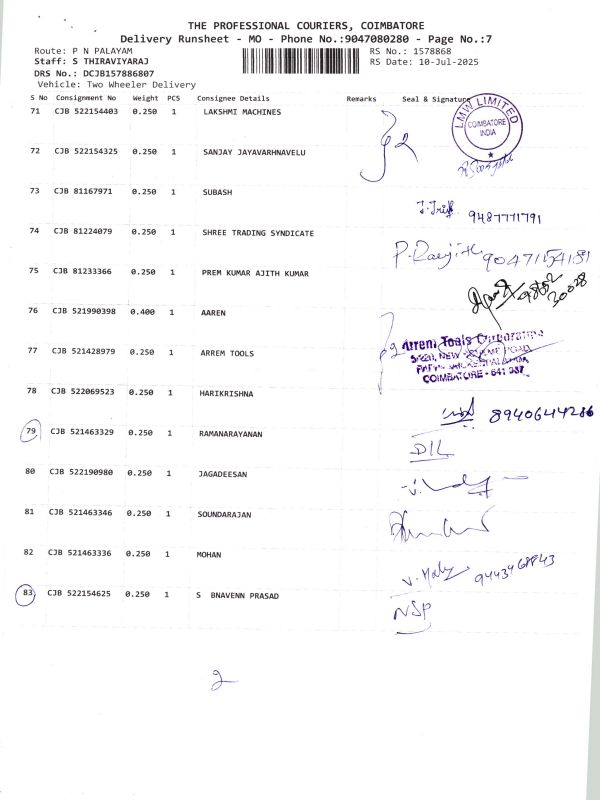 THE PROFESSIONAL COURIERS, COIMBATORE
Delivery Runsheet - MO - Phone No.:9047080280 - Page No.:7
Route: P N PALAYAM RS No.: 1578868
Staff: S THIRAVIYARAJ RS Date: 10-Jul-2025
DRS No.: DCJB157886807
Vehicle: Two Wheeler Delivery
S No Consignment No Weight PCS Consignee Details Remarks Seal & Signature
71 CJB 522154403 0.250 1 LAKSHMI MACHINES 2
LMW LIMITED
COIMBATORE
INDIA
72 CJB 522154325 0.250 1 SANJAY JAYAVARHNAVELU
73 CJB 81167971 0.250 1 SUBASH 9487771791
74 CJB 81224079 0.250 1 SHREE TRADING SYNDICATE P. Ranjith 9047154181
75 CJB 81233366 0.250 1 PREM KUMAR AJITH KUMAR
76 CJB 521990398 0.400 1 AAREN 2
Arrem Tools Corporation
77 CJB 521428979 0.250 1 ARREM TOOLS
COIMBATORE - 641 037
78 CJB 522069523 0.250 1 HARIKRISHNA 8940644286
79 CJB 521463329 0.250 1 RAMANARAYANAN DIL
80 CJB 522190980 0.250 1 JAGADEESAN
81 CJB 521463346 0.250 1 SOUNDARAJAN
82 CJB 521463336 0.250 1 MOHAN
83 CJB 522154625 0.250 1 S BNAVENN PRASAD NSP
2